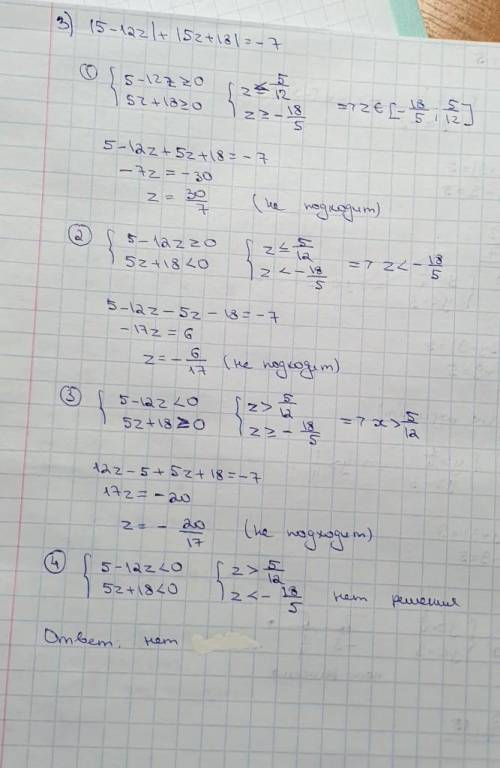 3) |5-12z|+|5z+18|=-7
① { 5-12z≥0 { z≤5/12
5z+18≥0 z≥-18/5 => z∈[-18/5; 5/12]
5-12z+5z+18=-7
-7z=-30
z=30/7 (не подходит)
② { 5-12z≥0 { z≤5/12
5z+18<0 z<-18/5 => z<-18/5
5-12z-5z-18=-7
-17z=6
z=-6/17 (не подходит)
③ { 5-12z<0 { z>5/12
5z+18≥0 z≥-18/5 => x>5/12
12z-5+5z+18=-7
17z=-20
z=-20/17 (не подходит)
④ { 5-12z<0 { z>5/12
5z+18<0 z<-18/5 нет решения
Ответ: нет